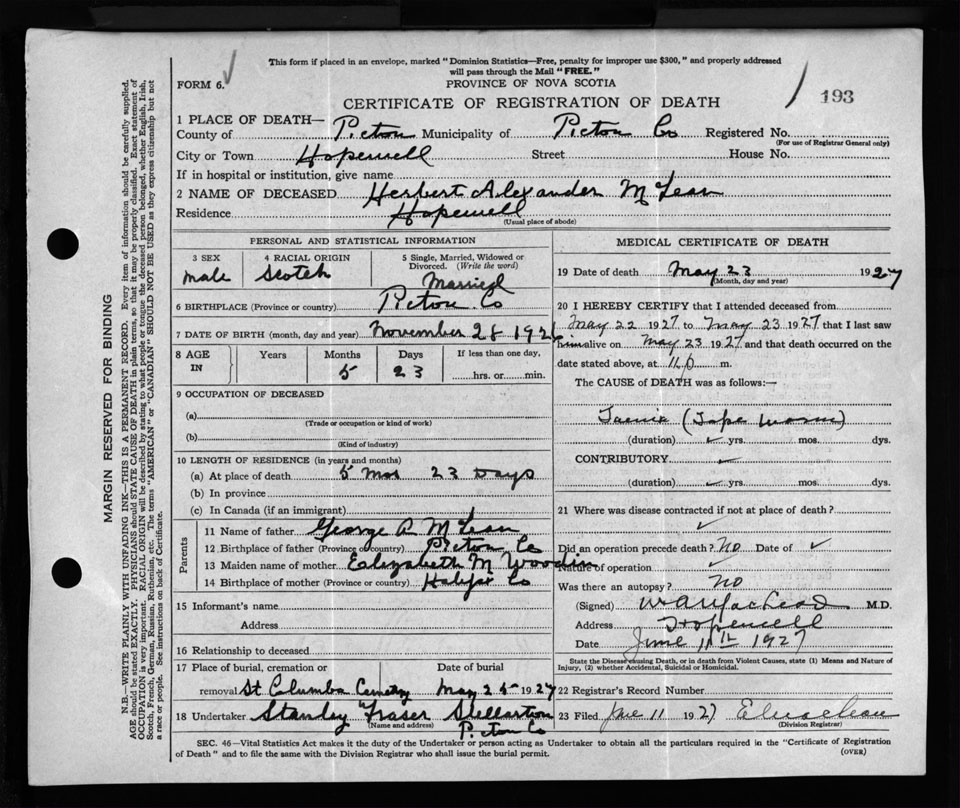 This form if placed in an envelope, marked "Dominion Statistics—Free, penalty for improper use $300," and properly addressed
will pass through the Mail "FREE."
FORM 6.
PROVINCE OF NOVA SCOTIA
CERTIFICATE OF REGISTRATION OF DEATH
193
1 PLACE OF DEATH—
County of Picton Municipality of Picton Co Registered No.
(For use of Registrar General only)
City or Town Hopewell Street House No.
If in hospital or institution, give name
2 NAME OF DECEASED Herbert Alexander McLean
Residence Hopewell
(Usual place of abode)
PERSONAL AND STATISTICAL INFORMATION
3 SEX 4 RACIAL ORIGIN 5 Single, Married, Widowed or Divorced. (Write the word)
male Scotch Married
6 BIRTHPLACE (Province or country) Picton Co
7 DATE OF BIRTH (month, day and year) November 28 1926
8 AGE IN Years Months Days If less than one day,
5 23 hrs. or min.
9 OCCUPATION OF DECEASED
(a)
(Trade or occupation or kind of work)
(b)
(Kind of industry)
10 LENGTH OF RESIDENCE (in years and months)
(a) At place of death 5 Mos 23 Days
(b) In province
(c) In Canada (if an immigrant)
Parents
11 Name of father George A McLean
12 Birthplace of father (Province or country) Picton Co
13 Maiden name of mother Elizabeth M Woodin
14 Birthplace of mother (Province or country) Halifax Co
15 Informant's name
Address
16 Relationship to deceased
17 Place of burial, cremation or Date of burial
removal St. Columba Cemetry May 25 1927
18 Undertaker Stanley Fraser Stellarton
(Name and address) Picton Co
MEDICAL CERTIFICATE OF DEATH
19 Date of death May 23 1927
(Month, day and year)
20 I HEREBY CERTIFY that I attended deceased from
May 22 1927 to May 23 1927 that I last saw
him alive on May 23 1927 and that death occurred on the
date stated above, at m.
The CAUSE of DEATH was as follows:—
Taenia (Tape Worm)
(duration) yrs. mos. dys.
CONTRIBUTORY
(duration) yrs. mos. dys.
21 Where was disease contracted if not at place of death?
Did an operation precede death? No Date of
Nature of operation
Was there an autopsy? No
(Signed) M.D.
Address Hopewell
Date June 11th 1927
State the Disease causing Death, or in death from Violent Causes, state (1) Means and Nature of
Injury, (2) whether Accidental, Suicidal or Homicidal.
22 Registrar's Record Number
23 Filed June 11 1927
(Division Registrar)
SEC. 46—Vital Statistics Act makes it the duty of the Undertaker or person acting as Undertaker to obtain all the particulars required in the "Certificate of Registration
of Death" and to file the same with the Division Registrar who shall issue the burial permit.
(OVER)
MARGIN RESERVED FOR BINDING
N.B.—WRITE PLAINLY WITH UNFADING INK—THIS IS A PERMANENT RECORD. Every item of information should be carefully supplied.
AGE should be stated EXACTLY. PHYSICIANS should STATE CAUSE OF DEATH in plain terms, so that it may be properly classified. Exact statement of
OCCUPATION is very important. RACIAL ORIGIN will be described by stating to what people or tongue the deceased person belonged, whether English, Irish,
Scotch, French, German, Russian, Ruthenian, etc. The terms "AMERICAN" or "CANADIAN" SHOULD NOT BE USED as they express citizenship but not
a race or people. See instructions on back of Certificate.